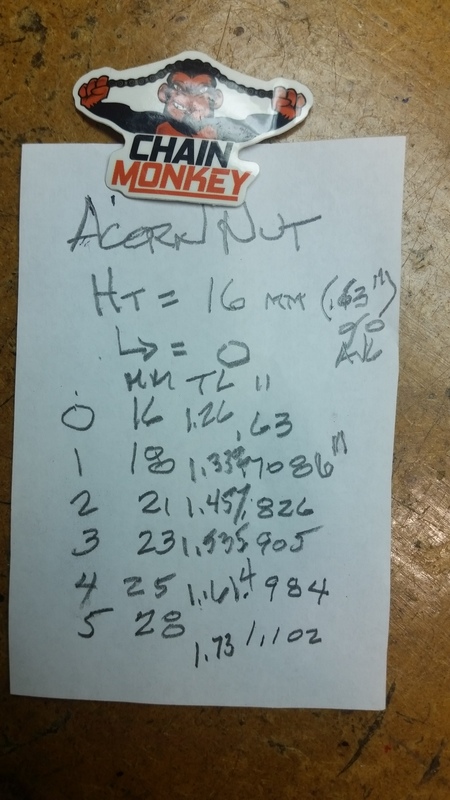 CHAIN
MONKEY
ACORN NUT
HT = 16 MM (.63")
↳ = 0
MM TL "
0 16 1.26 .63
1 18 7086"
2 21 1.45 .826
3 23 1.535 905
4 25 984
5 28 1.73 / 1.102